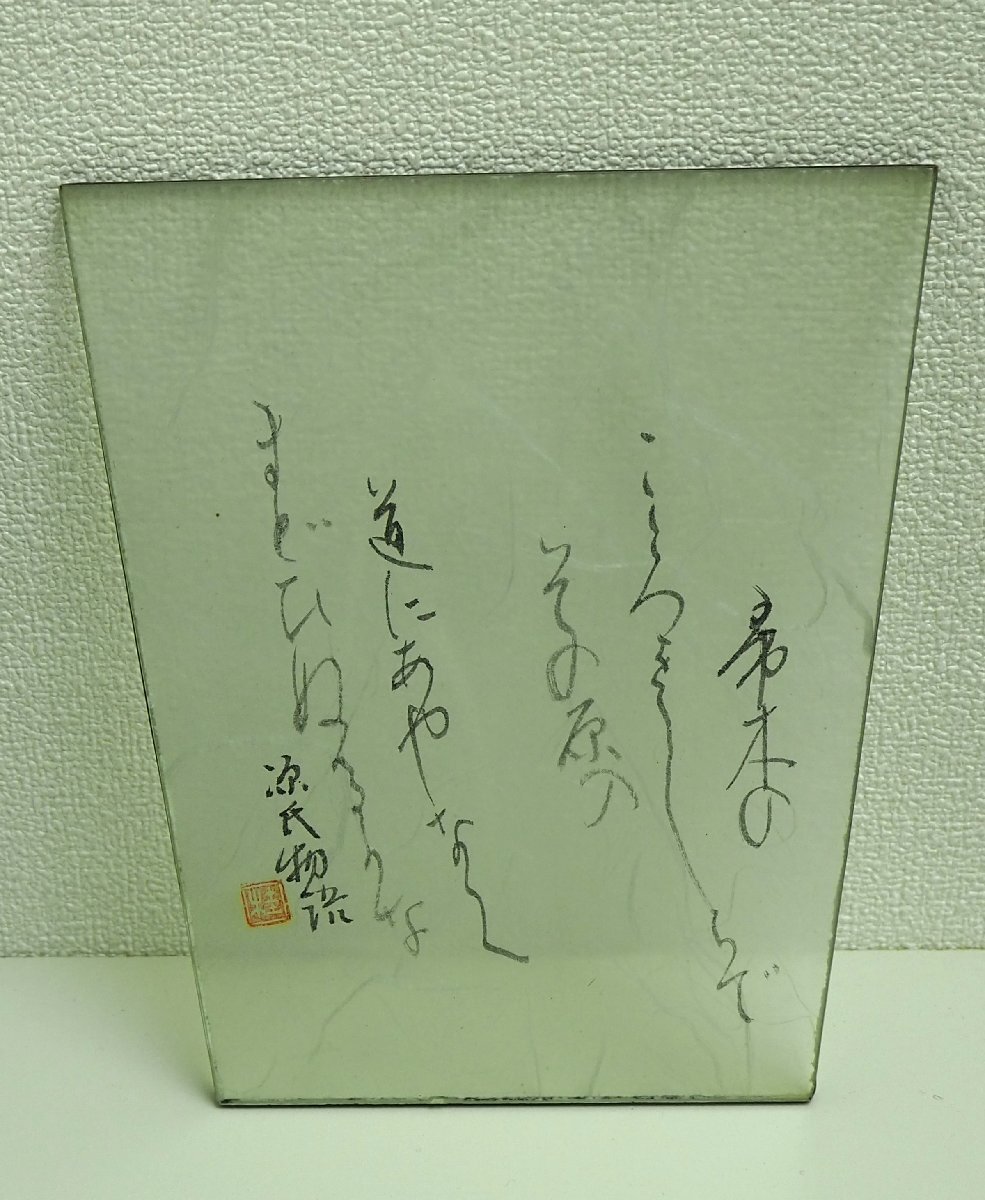 帚木の
こころをしらで
その原の
道にあやなく
まどひぬるかな
源氏物語